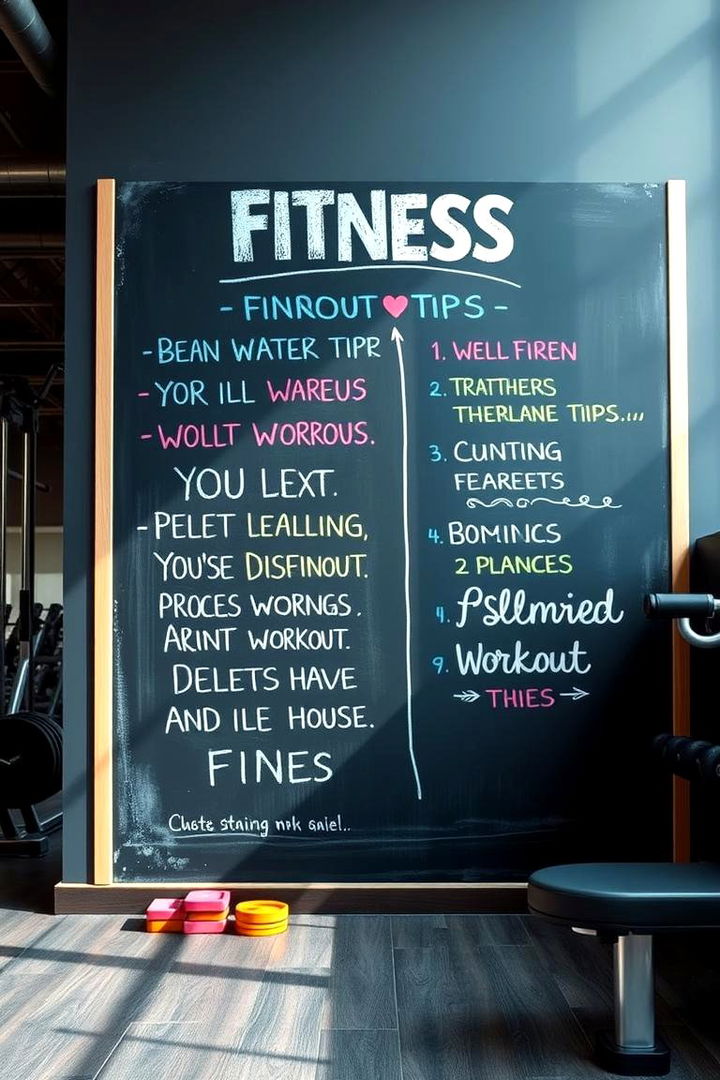 FITNESS
- FINROUT TIPS -
-BEAN WATER TIPR
- YOR ILL WAREUS
-WOLLT WORROUS.
YOU LEXT.
-PELET LEALLING,
YOU'SE DISFINOUT.
PROCES WORNGS.
ARINT WORKOUT.
DELETS HAVE
AND ILE HOUSE.
FINES
1. WELL FIREN
2. TRATTHERS
THERLANE TIPS....
3. CUNTING
FEAREETS
4. BOMINCS
2 PLANCES
4. Psllmried
9. Workout
THIES